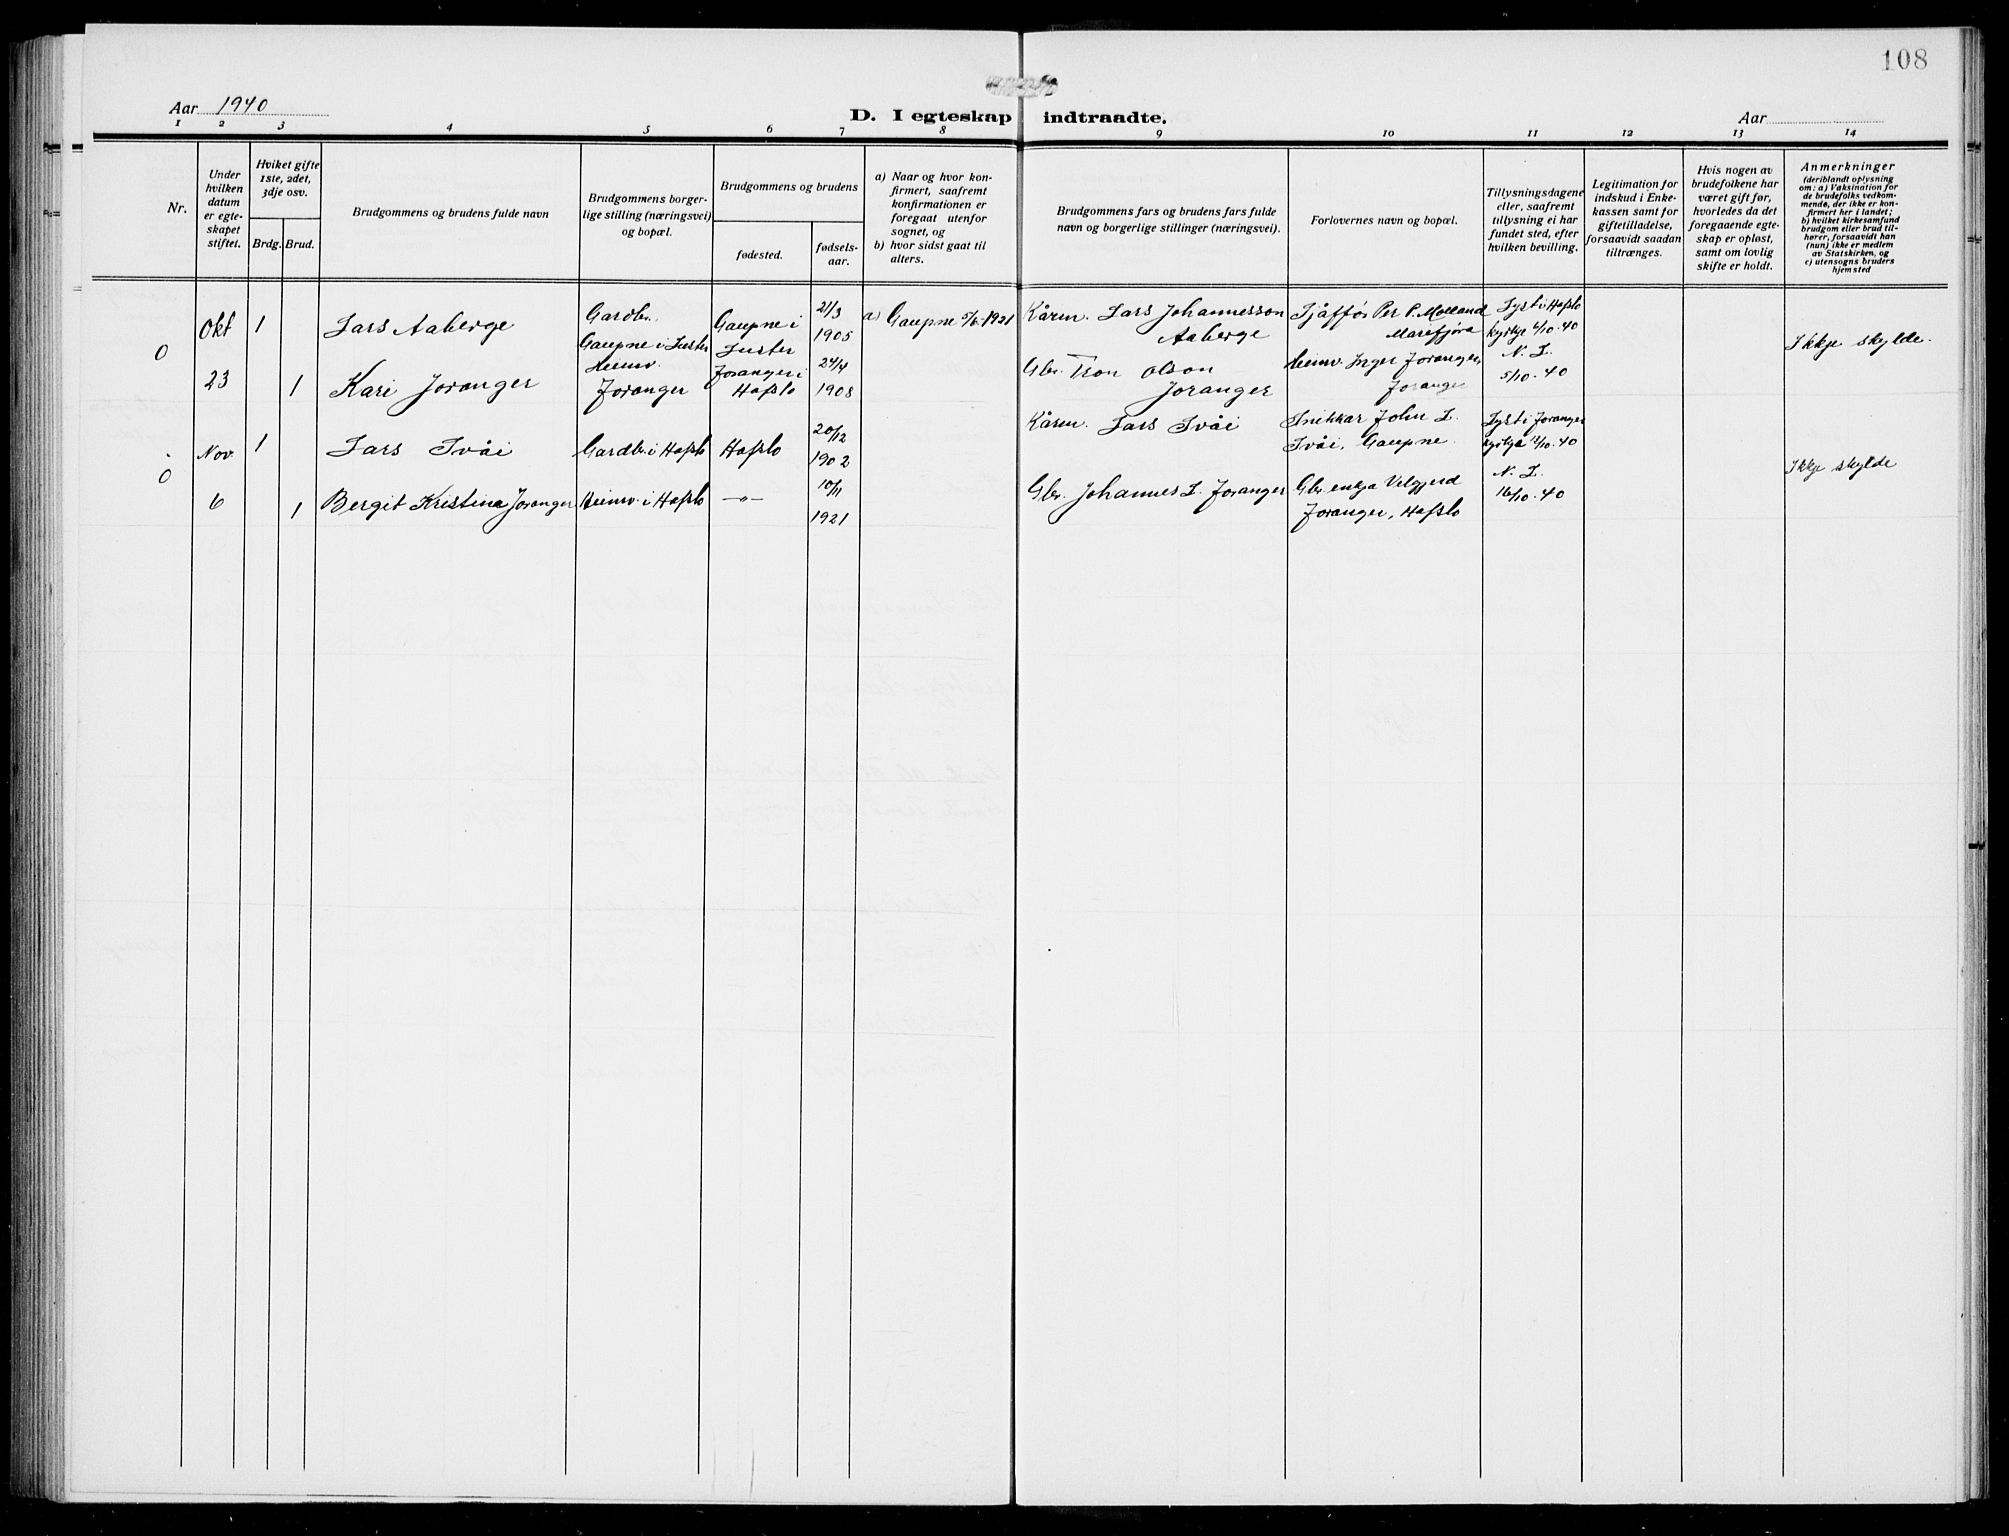 108
Aar 1940
D. I egteskap indtraadte.
Aar
1 2 3 4 5 6 7 8 9 10 11 12 13 14
Nr.
Under
hvilken
datum
er egte-
skapet
stiftet.
Hviket gifte
1ste, 2det,
3dje osv.
Brdg. Brud.
Brudgommens og brudens fulde navn
Brudgommens borger-
lige stilling (næringsvei)
og bopæl.
Brudgommens og brudens
fødested.
fødsels-
aar.
a) Naar og hvor kon-
firmert, saafremt
konfirmationen er
foregaat utenfor
sognet, og
b) hvor sidst gaat til
alters.
Brudgommens fars og brudens fars fulde
navn og borgerlige stillinger (næringsvei).
Forlovernes navn og bopæl.
Tillysningsdagene
eller, saafremt
tillysning ei har
fundet sted, efter
hvilken bevilling.
Legitimation for
indskud i Enke-
kassen samt for
giftetilladelse,
forsaavidt saadan
tiltrænges.
Hvis nogen av
brudefolkene har
været gift før,
hvorledes da det
foregaaende egte-
skap er opløst,
samt om lovlig
skifte er holdt.
Anmerkninger
(deriblandt oplysning
om: a) Vaksination for
de brudefolks vedkom-
mende, der ikke er kon-
firmert her i landet;
b) hvilket kirkesamfund
brudgom eller brud til-
hører, forsaavidt han
(hun) ikke er medlem
av Statskirken, og
c) utensogns bruders
hjemsted
0
Okt
23
1
Lars Aaberge
Gardbr.
Gaupne i Luster
Gaupne i
Luster
21/3
1905
a) Gaupne 5/6-1921
Kårm. Lars Johannesson
Aaberge
Sjåffør Per P. Molland
Marifjøra
Lyst i Hafslo
kyrkje 6/10.40
Ikkje skylde.
1
Kari Joranger
Heimv.
Joranger
Joranger i
Hafslo
24/4
1908
Gbr. Tron Olson
Joranger
Heimv. Inger Joranger,
Joranger
N. L.
5/10.40
0
Nov.
6
1
Lars Svåi
Gardbr. i Hafslo
Hafslo
20/12
1902
Kårm. Lars Svåi
Snikkar John L.
Svåi, Gaupne.
Lyst i Joranger
kyrkja 13/10.40
Ikkje skylde
1
Bergit Kristina Joranger
Heimv. i Hafslo
-"-
10/11
1921
Gbr. Johannes L. Joranger
Gbr. enkja Velgjerd
Joranger, Hafslo
N. L.
16/10.40